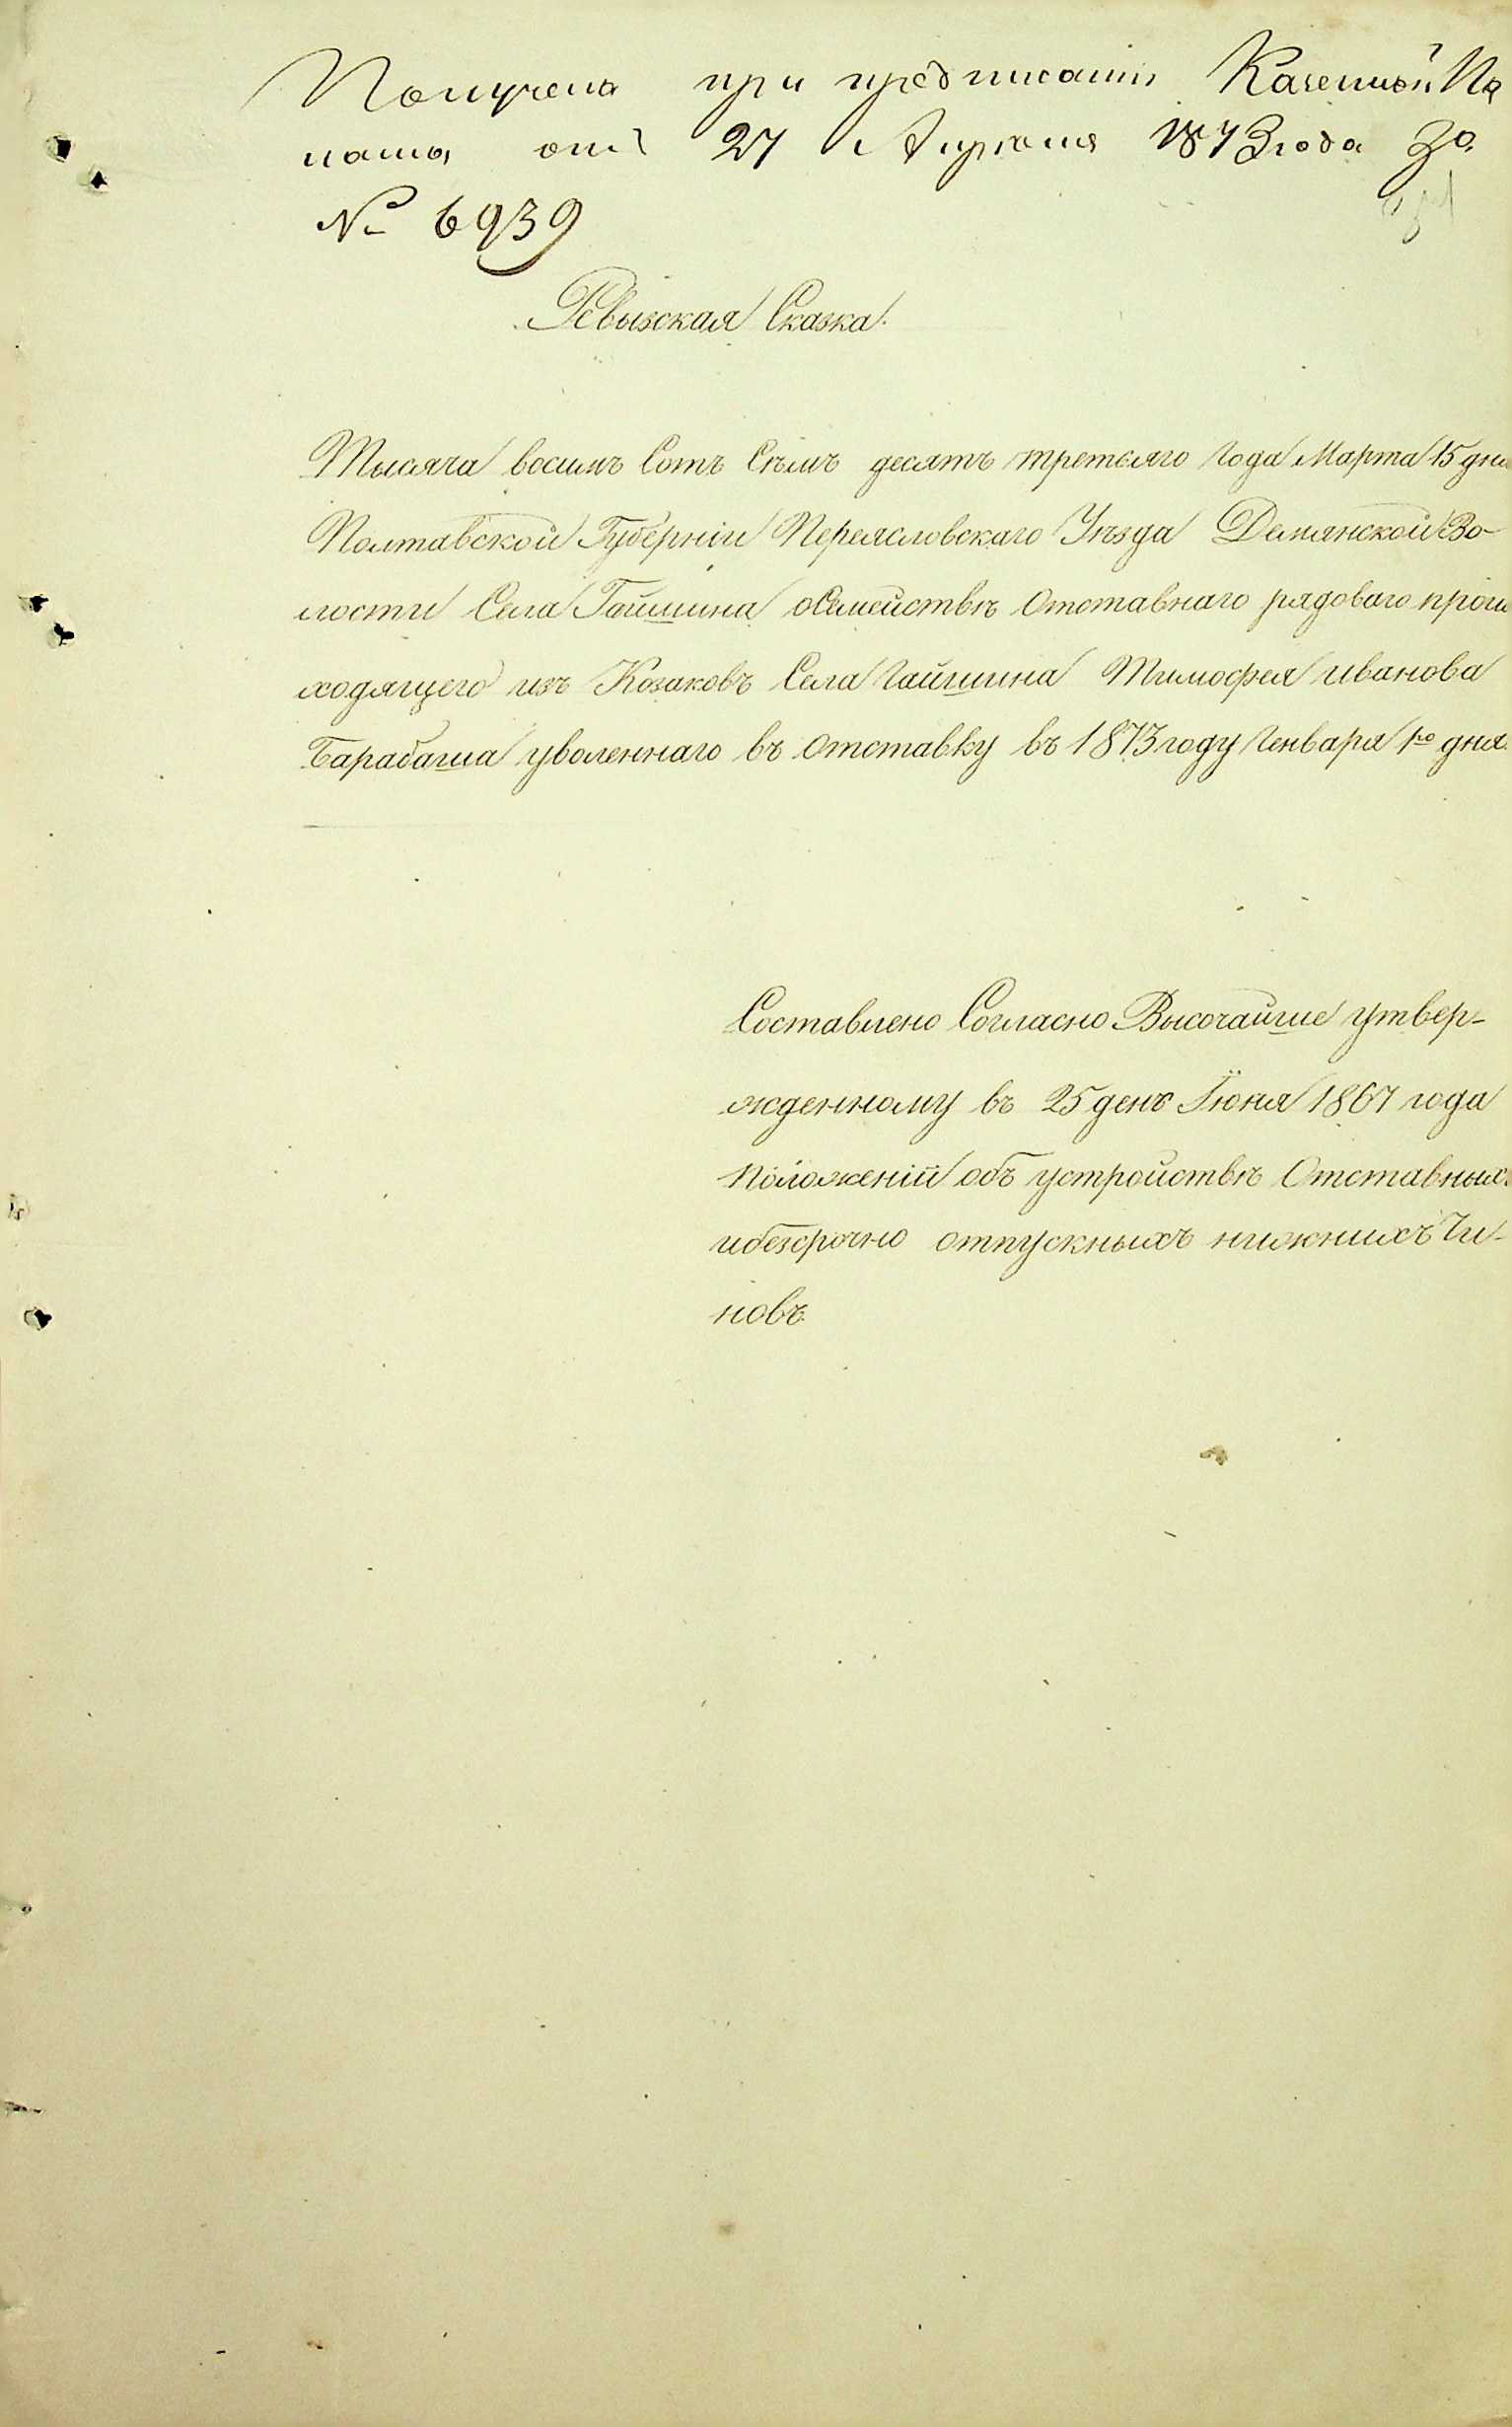 Получена при предписаніи Казенной Па
латы отъ 27 Апреля 1873 года за
№ 6939
Ревызская Сказка.
Тысяча восимъ Сотъ Сѣмъ десятъ третьяго года Марта 15 дня
Полтавской Губерніи Переясловскаго Уѣзда Демянской Во-
лости Села Гайшина о Семействѣ Отставнаго рядоваго проис
ходящего изъ Козаковъ Села Гайшина Тимофея Иванова
Барабаша уволеннаго въ Отставку въ 1873 году Генваря 1го дня.
Составлено Согласно Высочайше утвер-
жденному въ 25 день Іюня 1867 года
Положеній объ устройствѣ Отставныхъ
и безсрочно отпускныхъ нижнихъ Чи-
новъ